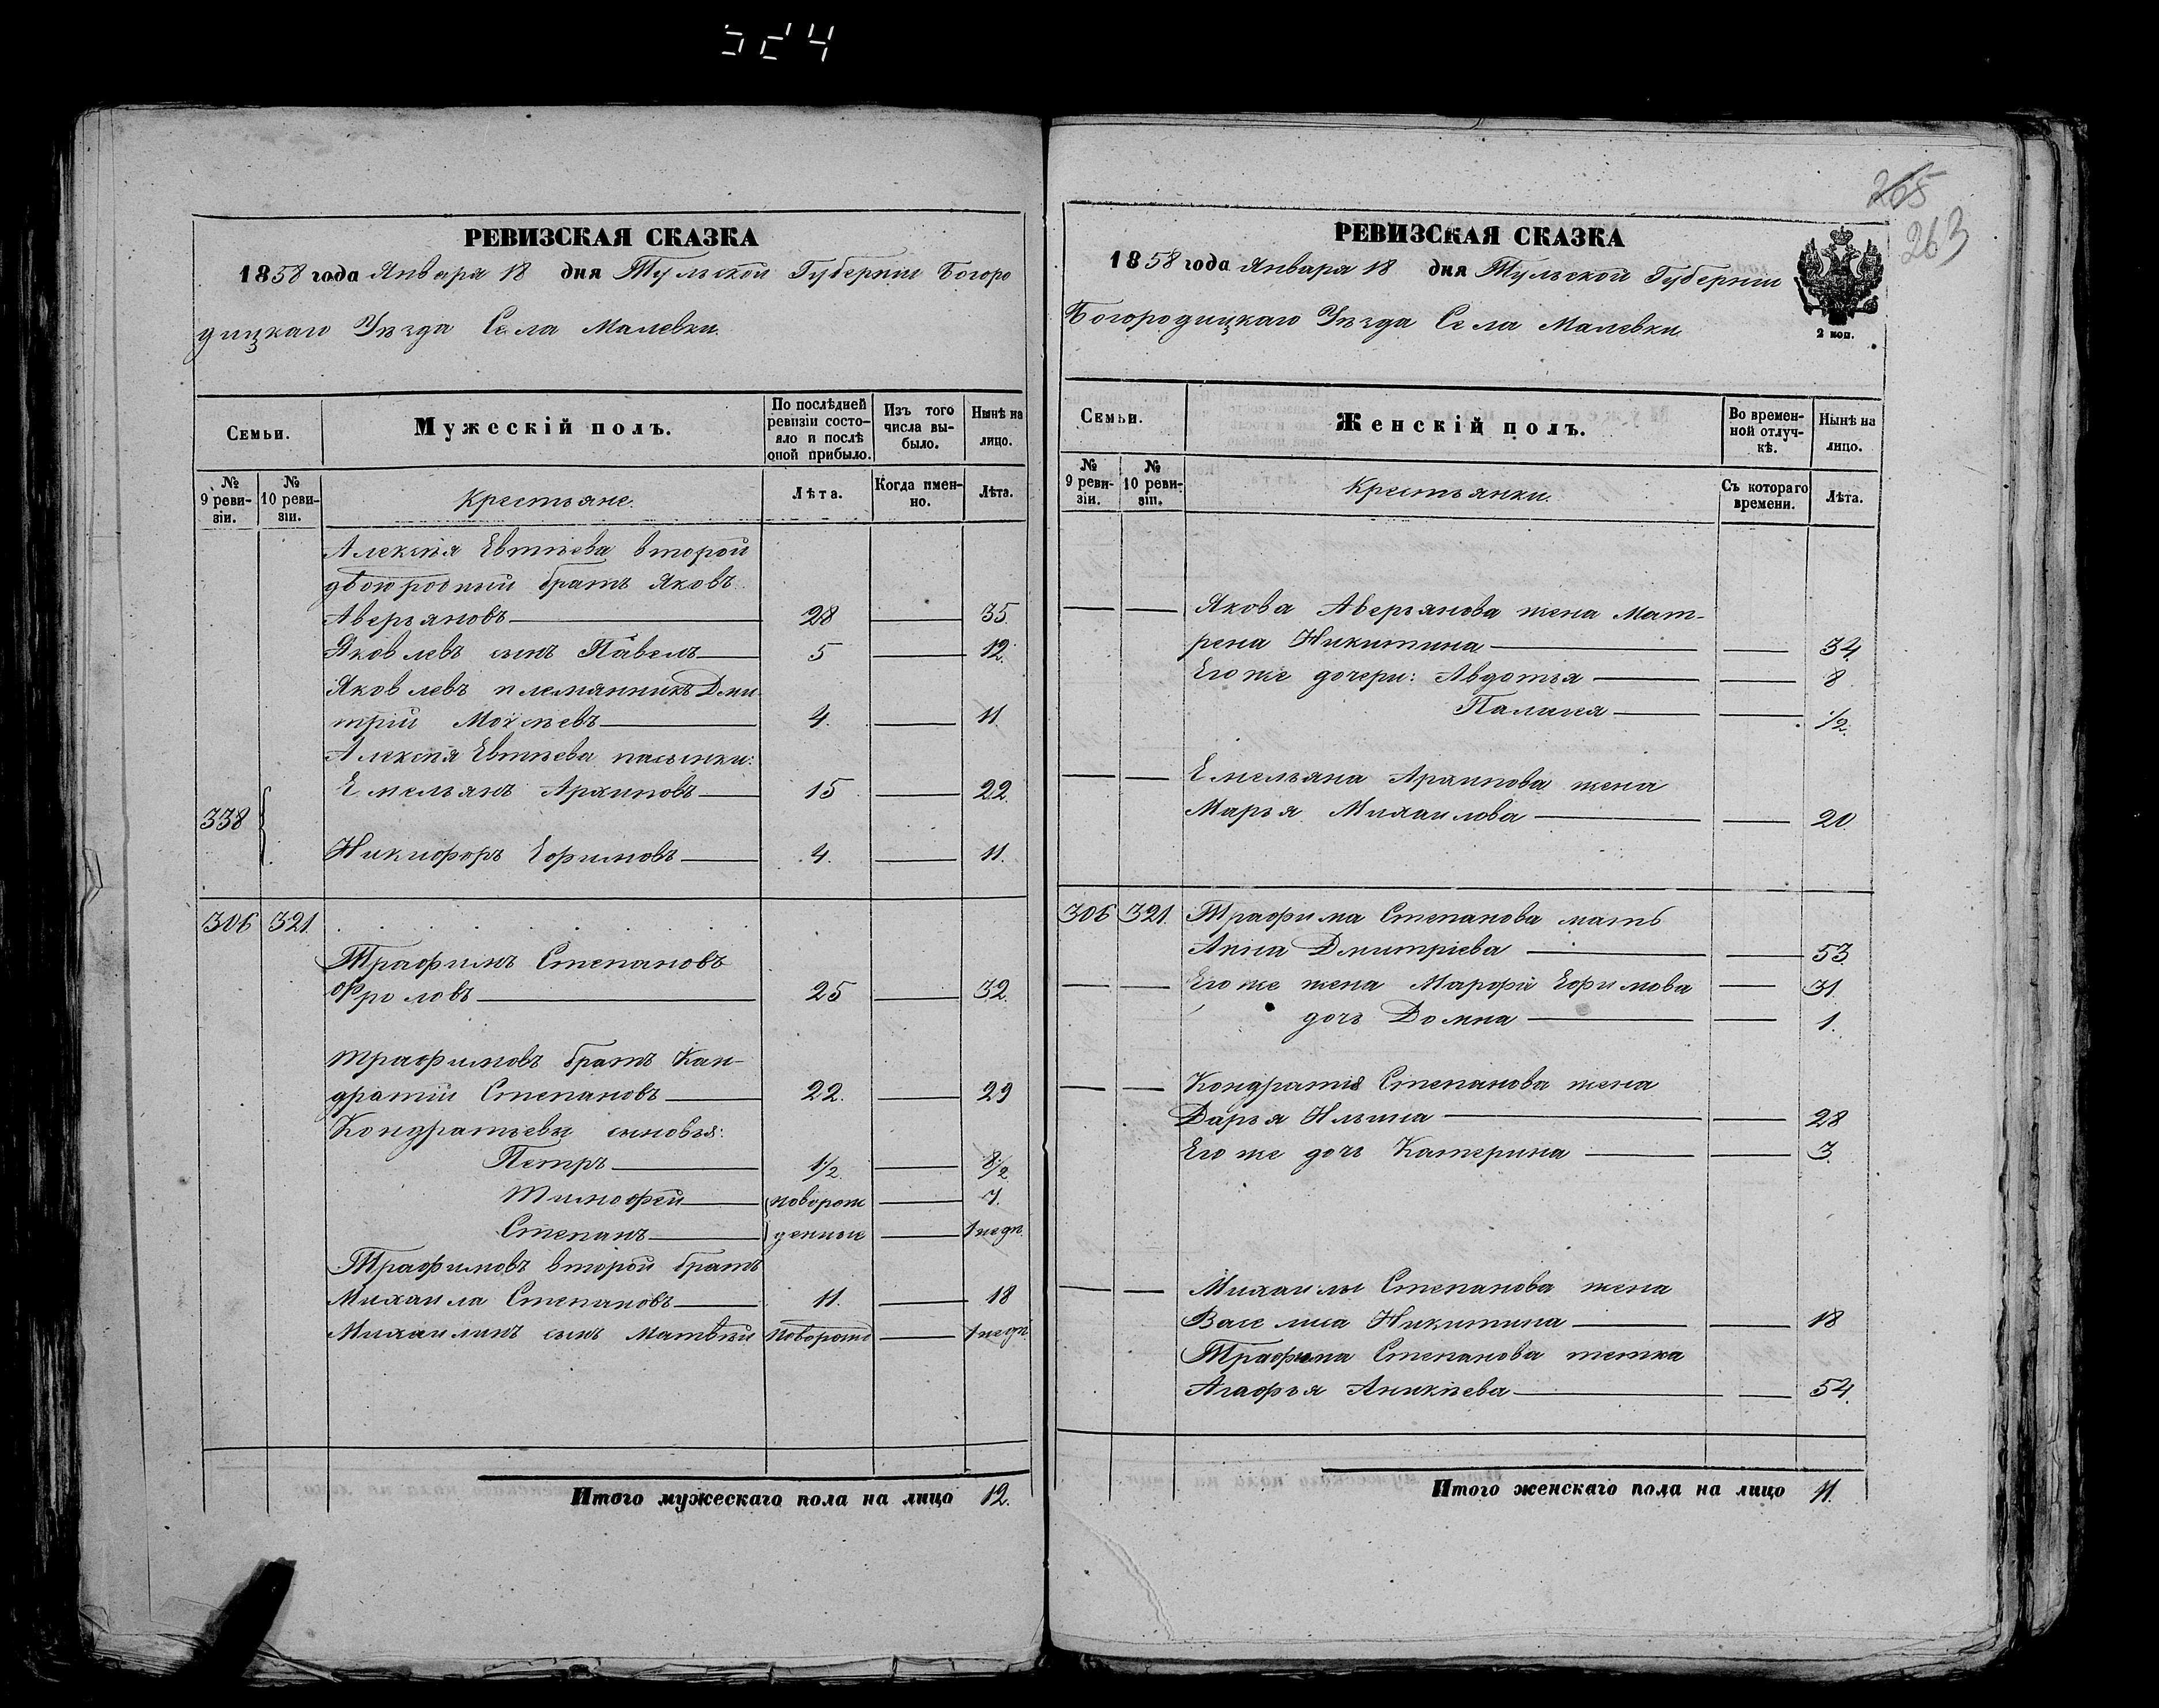 324
РЕВИЗСКАЯ СКАЗКА
1858 года Января 18 дня Тульской Губерніи Богоро
дицкаго Уѣзда Села Малевки.
Семьи.
Мужескій полъ.
По послѣдней ревизіи состояло и послѣ оной прибыло.
Изъ того числа выбыло.
Нынѣ на лицо.
№ 9 ревизіи.
№ 10 ревизіи.
Крестьяне.
Лѣта.
Когда именно.
Лѣта.
Алексѣя Евтѣева второй
двоюродный братъ Яковъ
Аверьяновъ 28 35.
Яковлевъ сынъ Павелъ 5 12.
Яковлевъ племянникъ Дми
трій Моисѣевъ 4. 11.
Алексѣя Евтѣева пасынки:
Емельянъ Архиповъ 15 22.
338
Никифоръ Ефимовъ 4. 11.
306 321.
Трафимъ Степановъ
Фроловъ 25 32.
Трафимовъ братъ Кан-
дратій Степановъ 22. 29
Кондратьевы сыновья:
Петръ 1½ 8½
Тимофей новорож 7.
Степанъ денные 1 недѣ.
Трафимовъ второй братъ
Михаила Степановъ 11. 18
Михаилинъ сынъ Матвѣй новорожд 1 недѣ.
Итого мужескаго пола на лицо 12.
265
263
РЕВИЗСКАЯ СКАЗКА
1858 года Января 18 дня Тульской Губерніи
Богородицкаго Уѣзда Села Малевки.
2 коп.
Семьи.
Женскій полъ.
Во временной отлучкѣ.
Нынѣ на лицо.
№ 9 ревизіи.
№ 10 ревизіи.
Крестьянки.
Съ котораго времени.
Лѣта.
Якова Аверьянова жена Мат-
рена Никитина 34.
Его же дочери: Авдотья 8
Палагея ½.
Емельяна Архипова жена
Марья Михаилова 20.
306 321. Трафима Степанова мать
Анна Дмитріева 53.
Его же жена Марфа Ефимова 31.
дочь Домна 1.
Кондратія Степанова жена
Дарья Ильина 28
Его же дочь Катерина 3.
Михаилы Степанова жена
Васелиса Никитина 18
Трафима Степанова тетка
Агафья Аникѣева 54.
Итого женскаго пола на лицо 11.